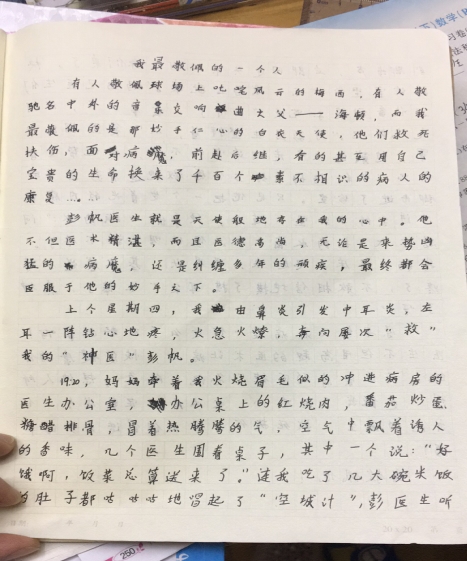 我最敬佩的一个人
有人敬佩球场上叱咤风云的梅西，有人敬
驰名中外的音乐交响曲之父——海顿，而我
最敬佩的是那妙手仁心的白衣天使，他们救死
扶伤，面对病魔，前赴后继，有的甚至用自己
宝贵的生命换来了千百个素不相识的病人的
康复……。
彭帆医生就是天使般地存在我的心中。他
不但医术精湛，而且医德高尚，无论是来势凶
猛的病魔，还是纠缠多年的顽疾，最终都会
臣服于他的妙手之下。
上个星期四，我由鼻炎引发中耳炎，左
耳一阵钻心地疼，火急火燎，奔向屡次“救”
我的“神医”彭帆。
19:20，妈妈牵着我火烧眉毛似的冲进病房的
医生办公室，办公桌上的红烧肉，番茄炒蛋
糖醋排骨，冒着热腾腾的气，空气中飘着诱人
的香味，几个医生围着桌子，其中一个说：“好
饿啊，饭菜总算送来了。”连我吃了几大碗米饭
的肚子都咕咕咕地唱起了“空城计”，彭医生听
250